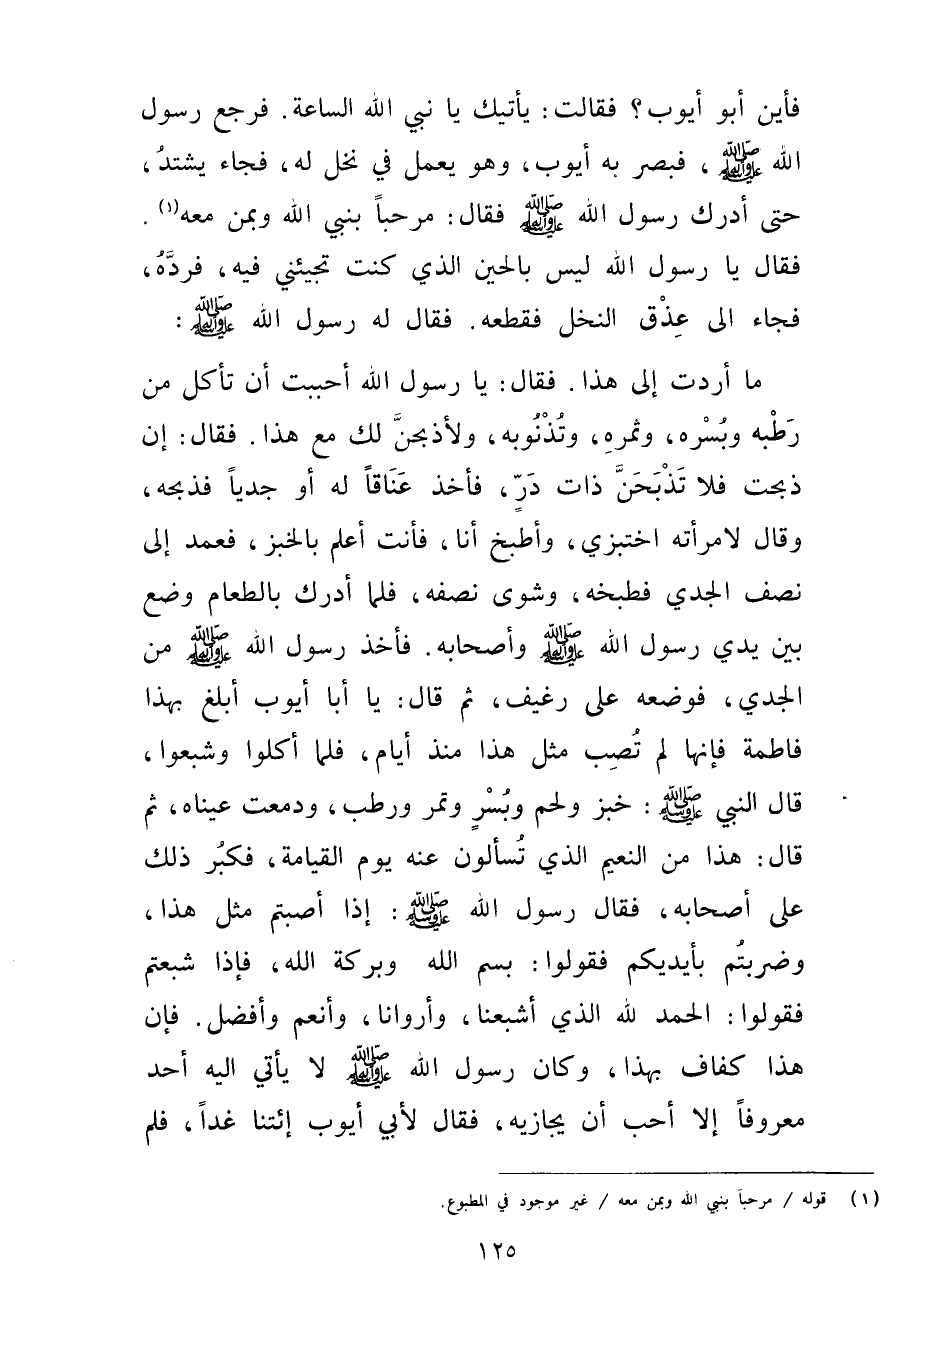 فأين أبو أيوب؟ فقالت: يأتيك يا نبي الله الساعة. فرجع رسول
الله ﷺ، فبصر به أيوب، وهو يعمل في نخل له، فجاء يشتدُ،
حتى أدرك رسول الله ﷺ فقال: مرحباً بنبي الله وبمن معه(١).
فقال يا رسول الله ليس بالحين الذي كنت تجيئني فيه، فردَّهُ،
فجاء الى عِذْق النخل فقطعه. فقال له رسول الله ﷺ:
ما أردت إلى هذا. فقال: يا رسول الله أحببت أن تأكل من
رَطْبه وبُسْره، وثمرهِ، وتُذْنُوبه، ولأذبحنَّ لك مع هذا. فقال: إن
ذبحت فلا تَذْبَحَنَّ ذات دَرٍّ، فأخذ عَنَاقاً له أو جدياً فذبحه،
وقال لامرأته اختبزي، وأطبخ أنا، فأنت أعلم بالخبز، فعمد إلى
نصف الجدي فطبخه، وشوى نصفه، فلما أدرك بالطعام وضع
بين يدي رسول الله ﷺ وأصحابه. فأخذ رسول الله ﷺ من
الجدي، فوضعه على رغيف، ثم قال: يا أبا أيوب أبلغ بهذا
فاطمة فإنها لم تُصِب مثل هذا منذ أيام، فلما أكلوا وشبعوا،
قال النبي ﷺ: خبز ولحم وبُسْرٍ وتمر ورطب، ودمعت عيناه، ثم
قال: هذا من النعيم الذي تُسألون عنه يوم القيامة، فكبُر ذلك
على أصحابه، فقال رسول الله ﷺ: إذا أصبتم مثل هذا،
وضربتُم بأيديكم فقولوا: بسم الله وبركة الله، فإذا شبعتم
فقولوا: الحمد لله الذي أشبعنا، وأروانا، وأنعم وأفضل. فإن
هذا كفاف بهذا، وكان رسول الله ﷺ لا يأتي اليه أحد
معروفاً إلا أحب أن يجازيه، فقال لأبي أيوب إئتنا غداً، فلم
(١) قوله / مرحباً بنبي الله وبمن معه / غير موجود في المطبوع.
١٢٥